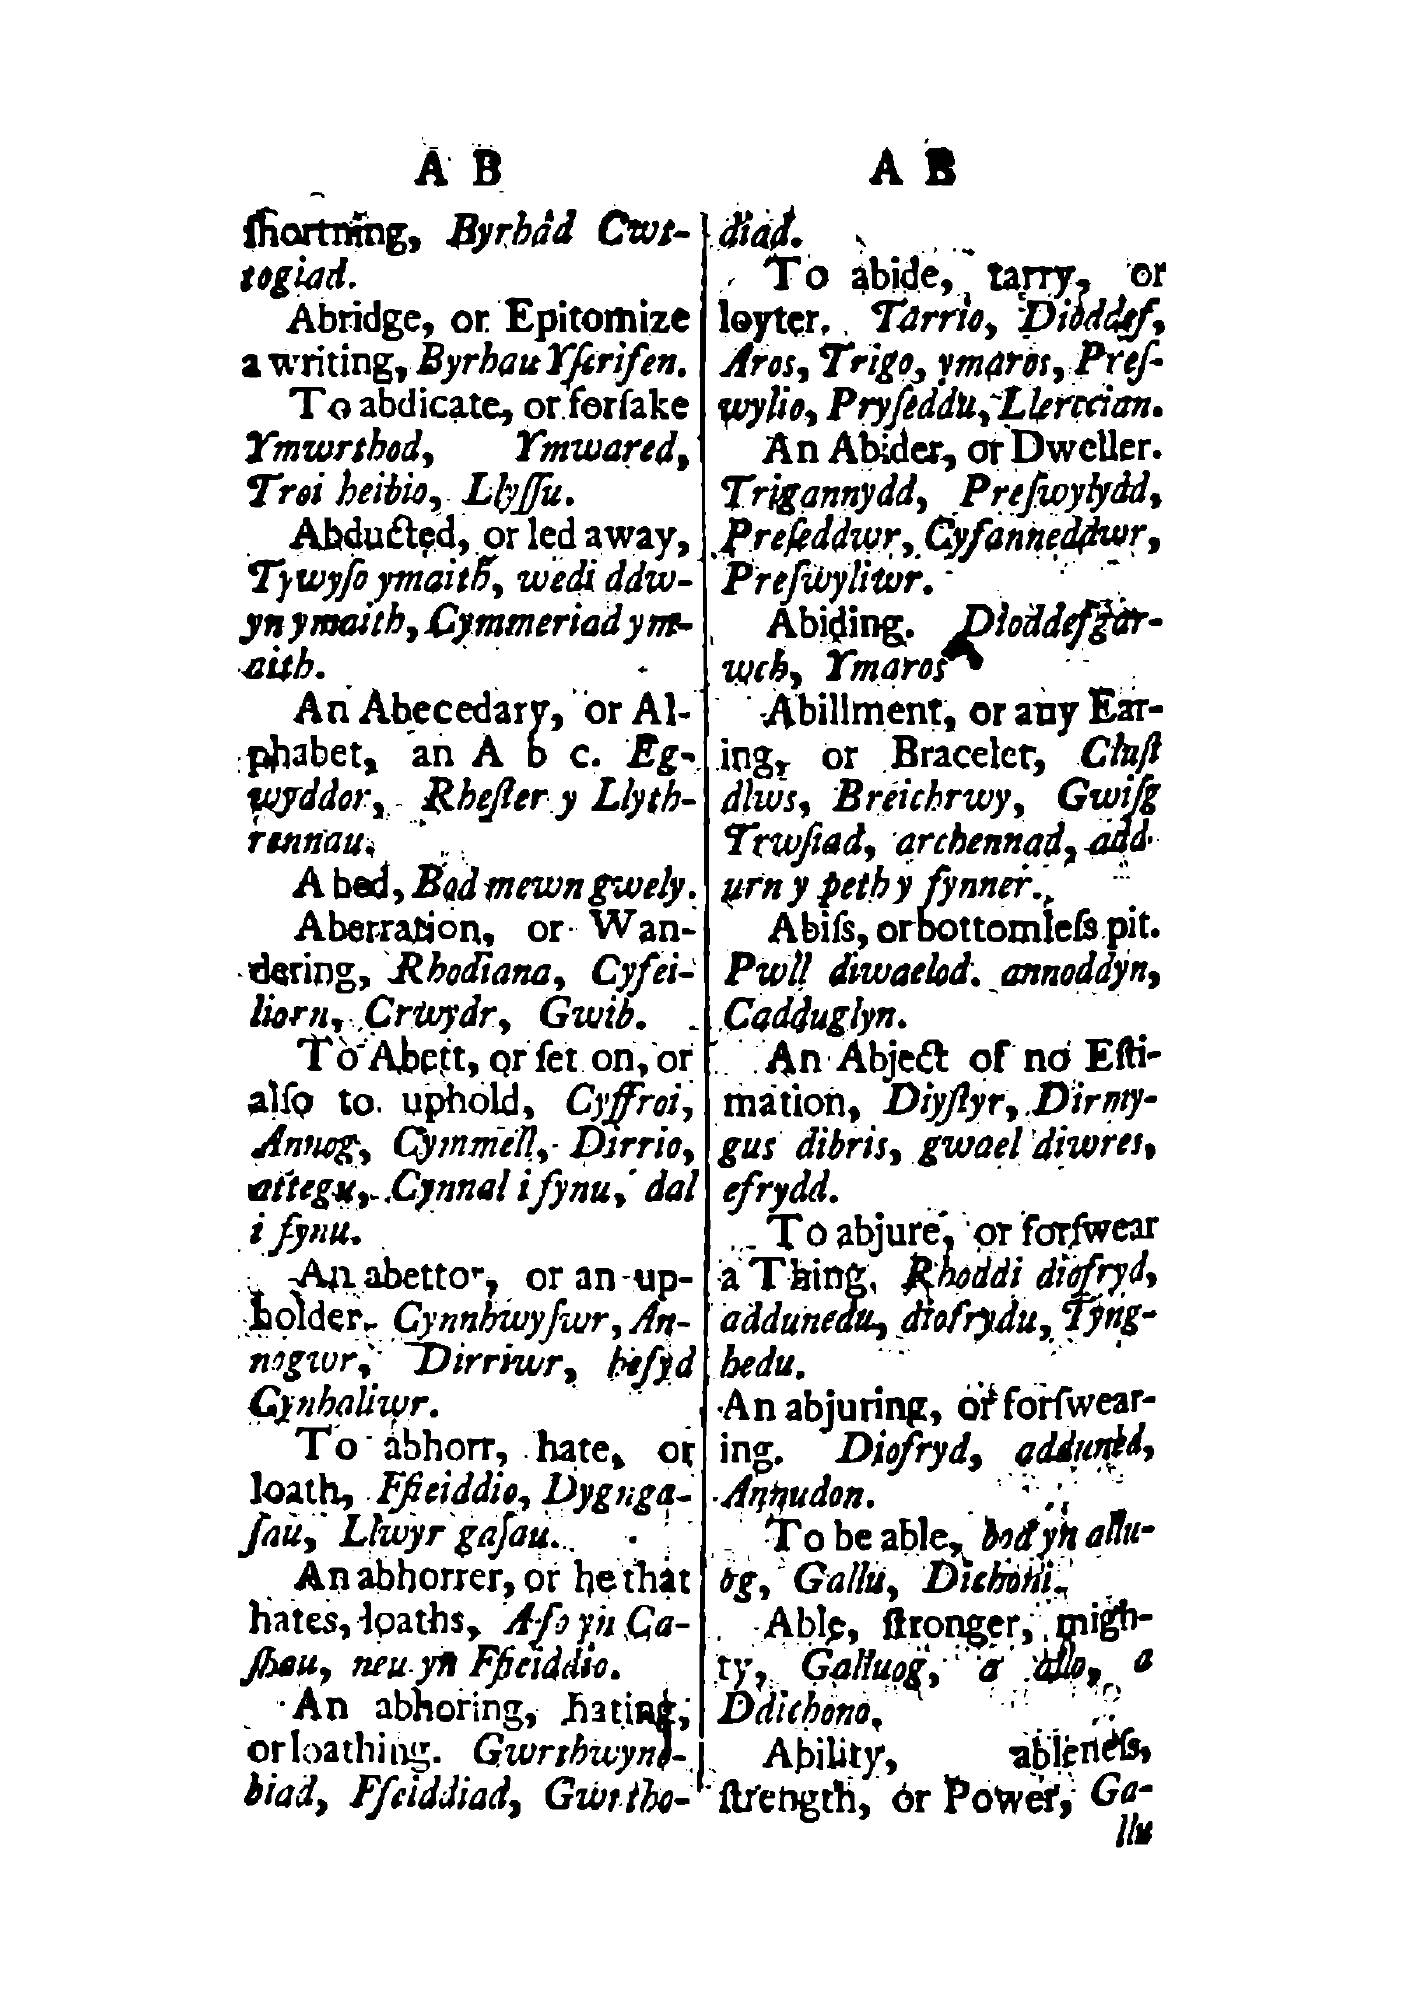 A B
ſhortning, Byrhâd Cwt-
togiad.
Abridge, or Epitomize
a writing, Byrhau Yſcrifen.
To abdicate, or forſake
Ymwrthod, Ymwared,
Troi heibio, Llyſſu.
Abducted, or led away,
Tywyſo ymaith, wedi ddw-
yn ymaith, Cymmeriad ym-
aith.
An Abecedary, or Al-
phabet, an A b c. Eg-
wyddor, Rheſter y Llyth-
rennau.
A bed, Bod mewn gwely.
Aberration, or Wan-
dering, Rhodiana, Cyfei-
liorn, Crwydr, Gwib.
To Abett, or ſet on, or
alſo to uphold, Cyffroi,
Annog, Cymmell, Dirrio,
attegu, Cynnal i fynu, dal
i fynu.
An abettor, or an up-
holder. Cynnhwyſwr, An-
nogwr, Dirriwr, hefyd
Cynhaliwr.
To abhorr, hate, or
loath, Ffieiddio, Dygnga-
ſau, Llwyr gaſau.
An abhorrer, or he that
hates, loaths, A fo yn Ca-
ſhau, neu yn Ffieiddio.
An abhoring, hating,
or loathing. Gwrthwyne-
biad, Fſeiddiad, Gwrtho-
A B
diad.
To abide, tarry, or
loyter. Tarrio, Dioddef,
Aros, Trigo, ymaros, Preſ-
wylio, Pryſeddu, Llercian.
An Abider, or Dweller.
Trigannydd, Preſwylydd,
Preſeddwr, Cyfanneddwr,
Preſwyliwr.
Abiding. Dioddefgar-
wch, Ymaros
Abillment, or any Ear-
ing, or Bracelet, Cluſt
dlws, Breichrwy, Gwiſg
Trwſiad, archennad, add
urn y peth y fynner.
Abiſs, or bottomleſs pit.
Pwll diwaelod. annoddyn,
Cadduglyn.
An Abject of no Eſti-
mation, Diyſtyr, Dirmy-
gus dibris, gwael diwres,
efrydd.
To abjure, or forſwear
a Thing. Rhoddi diofryd,
addunedu, diofrydu, Tyng-
hedu.
An abjuring, or forſwear-
ing. Diofryd, adduned,
Annudon.
To be able, bod yn allu-
og, Gallu, Dichoni.
Able, ſtronger, migh-
ty, Galluog, a allo, a
Ddichono.
Ability, ableneſs,
ſtrength, or Power, Ga-
llu